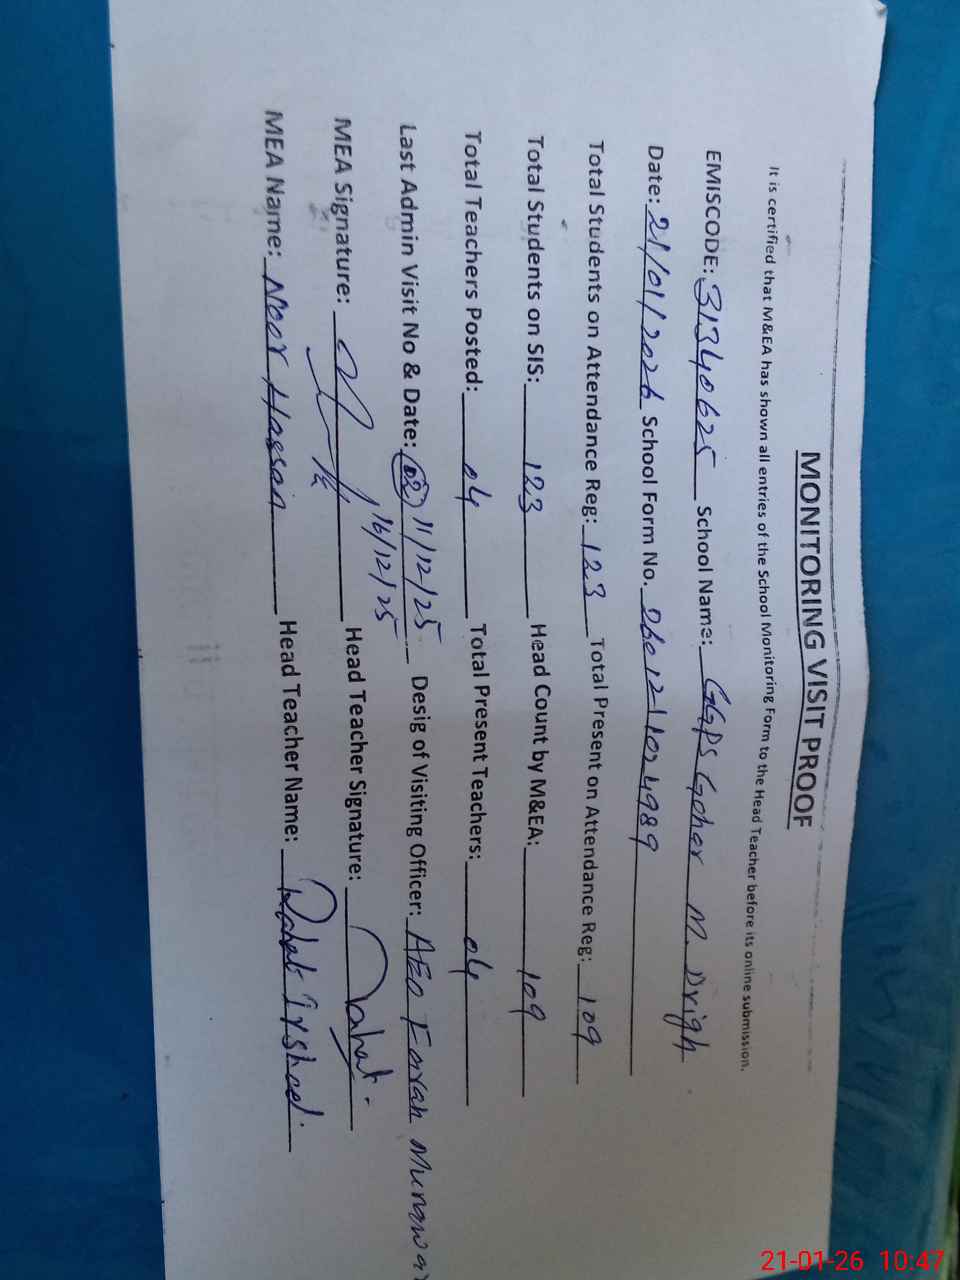 MONITORING VISIT PROOF
It is certified that M&EA has shown all entries of the School Monitoring Form to the Head Teacher before its online submission.
EMISCODE: 31340625 School Name: GGPS Goher M. Drigh
Date: 21/01/2026 School Form No. 260121104989
Total Students on Attendance Reg: 123 Total Present on Attendance Reg: 109
Total Students on SIS: 123 Head Count by M&EA: 109
Total Teachers Posted: 04 Total Present Teachers: 04
Last Admin Visit No & Date: 02 11/12/25 Desig of Visiting Officer: AEO Munawar
16/12/25
MEA Signature: Head Teacher Signature: Rahat
MEA Name: Noor Hassan Head Teacher Name: Rahat Irshad
21-01-26 10:47